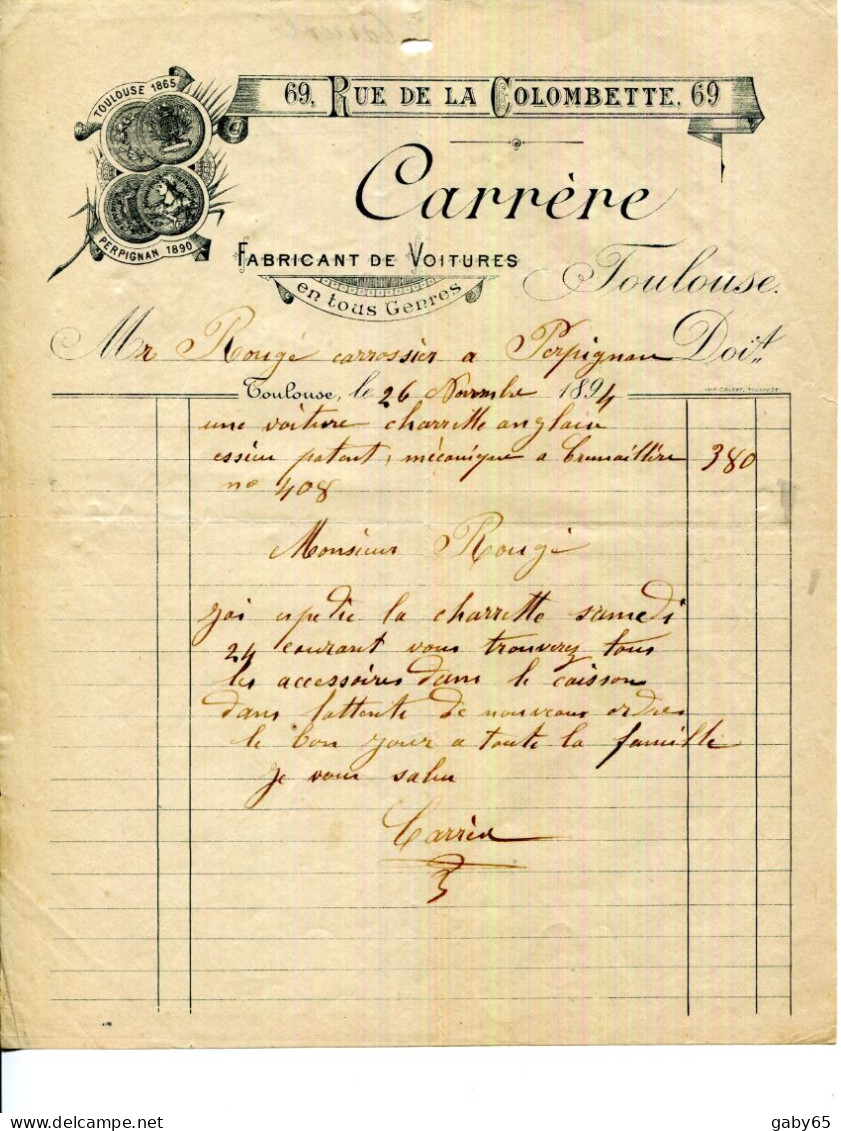 TOULOUSE 1865
PERPIGNAN 1890
69, RUE DE LA COLOMBETTE, 69
Carrère
FABRICANT DE VOITURES
en tous Genres
Toulouse.
Mr Rougé carrossier a Perpignan Doit
IMP. CALVET, TOULOUSE
Toulouse, le 26 Novembre 1894
une voiture charrette anglaise
essieu patent, mécanique a Cremaillère 380
no 408
Monsieur Rougé
jai expedie la charrette samedi
24 courant vous trouverez tous
les accessoires dans le caisson
dans lattente de nouveaux ordres
le bon jour a toute la famille
je vous salue
Carrère
delcampe.net
gaby65